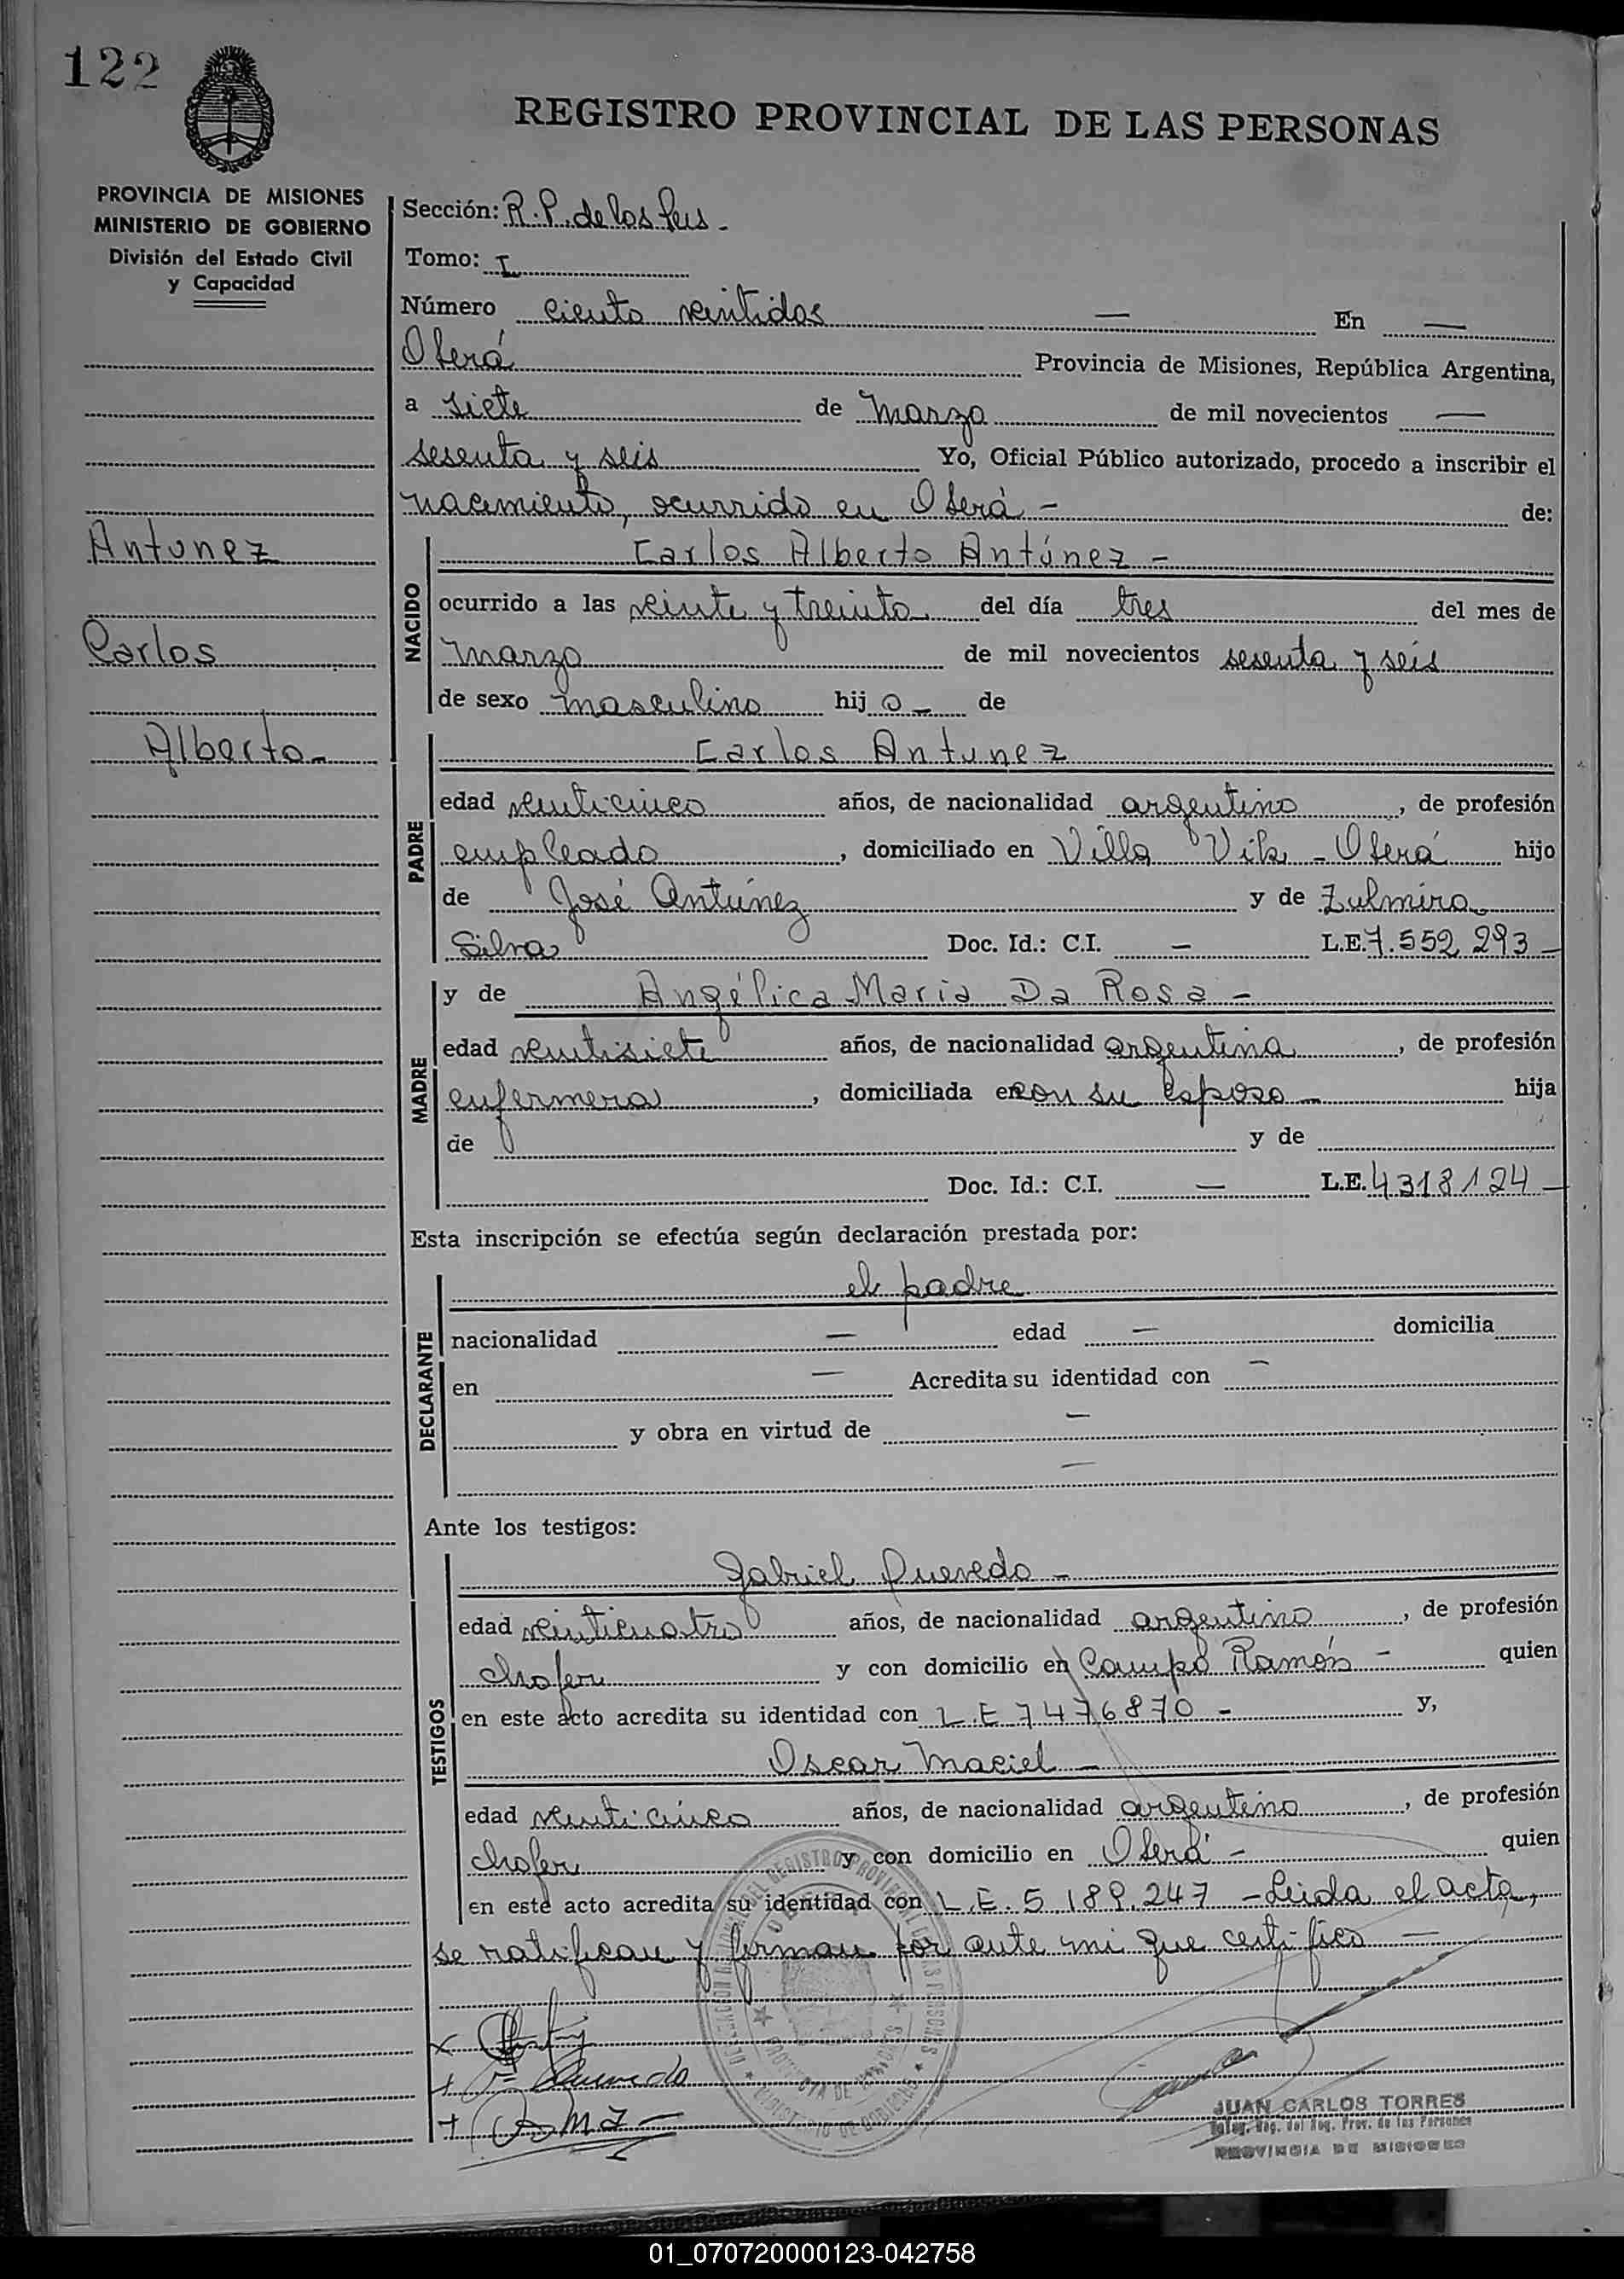 122
REGISTRO PROVINCIAL DE LAS PERSONAS
PROVINCIA DE MISIONES
MINISTERIO DE GOBIERNO
División del Estado Civil
y Capacidad
Antunez
Carlos
Alberto-
Sección: R. P. de los Per -
Tomo: I
Número ciento veintidos — En —
Oberá Provincia de Misiones, República Argentina,
a siete de marzo de mil novecientos —
sesenta y seis Yo, Oficial Público autorizado, procedo a inscribir el
nacimiento, ocurrido en Oberá - de:
NACIDO
Carlos Alberto Antúnez -
ocurrido a las veinte y treinta del día tres del mes de
marzo de mil novecientos sesenta y seis
de sexo masculino hij o - de
PADRE
Carlos Antunez
edad veinticinco años, de nacionalidad argentino, de profesión
empleado, domiciliado en Villa Vik - Oberá hijo
de José Antúnez y de Zulmira
Silva Doc. Id.: C.I. — L.E. 7.552.293 -
MADRE
y de Angélica Maria Da Rosa -
edad veintisiete años, de nacionalidad argentina, de profesión
enfermera, domiciliada en con su esposo - hija
de y de
Doc. Id.: C.I. — L.E. 4318124 -
Esta inscripción se efectúa según declaración prestada por:
DECLARANTE
el padre
nacionalidad — edad — domicilia
en — Acredita su identidad con —
y obra en virtud de —
—
Ante los testigos:
TESTIGOS
Gabriel Quevedo -
edad veinticuatro años, de nacionalidad argentino, de profesión
chofer y con domicilio en Campo Ramón - quien
en este acto acredita su identidad con L.E 7476870 - y,
Oscar Maciel -
edad veinticinco años, de nacionalidad argentino, de profesión
chofer y con domicilio en Oberá - quien
en este acto acredita su identidad con L.E. 5.189.247 - Leida el acta,
se ratifican y firman por ante mi que certifico —
JUAN CARLOS TORRES
Reg. del Reg. Prov. de las Personas
PROVINCIA DE MISIONES
01_070720000123-042758